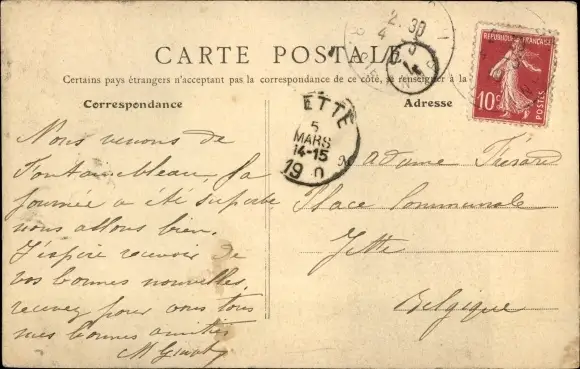 CARTE POSTALE
Certains pays étrangers n'acceptant pas la correspondance de ce côté, se renseigner à la
Correspondance
Adresse
REPUBLIQUE FRANÇAISE
10c
POSTES
2 30
4
ETTE
5
MARS
14-15
19 0
Nous venons de
Fontainebleau, la
journée a été superbe
nous allons bien.
J'espère recevoir de
vos bonnes nouvelles,
recevez pour vous tous
mes bonnes amitiés
M
Madame
Place Communale
Jette
Belgique